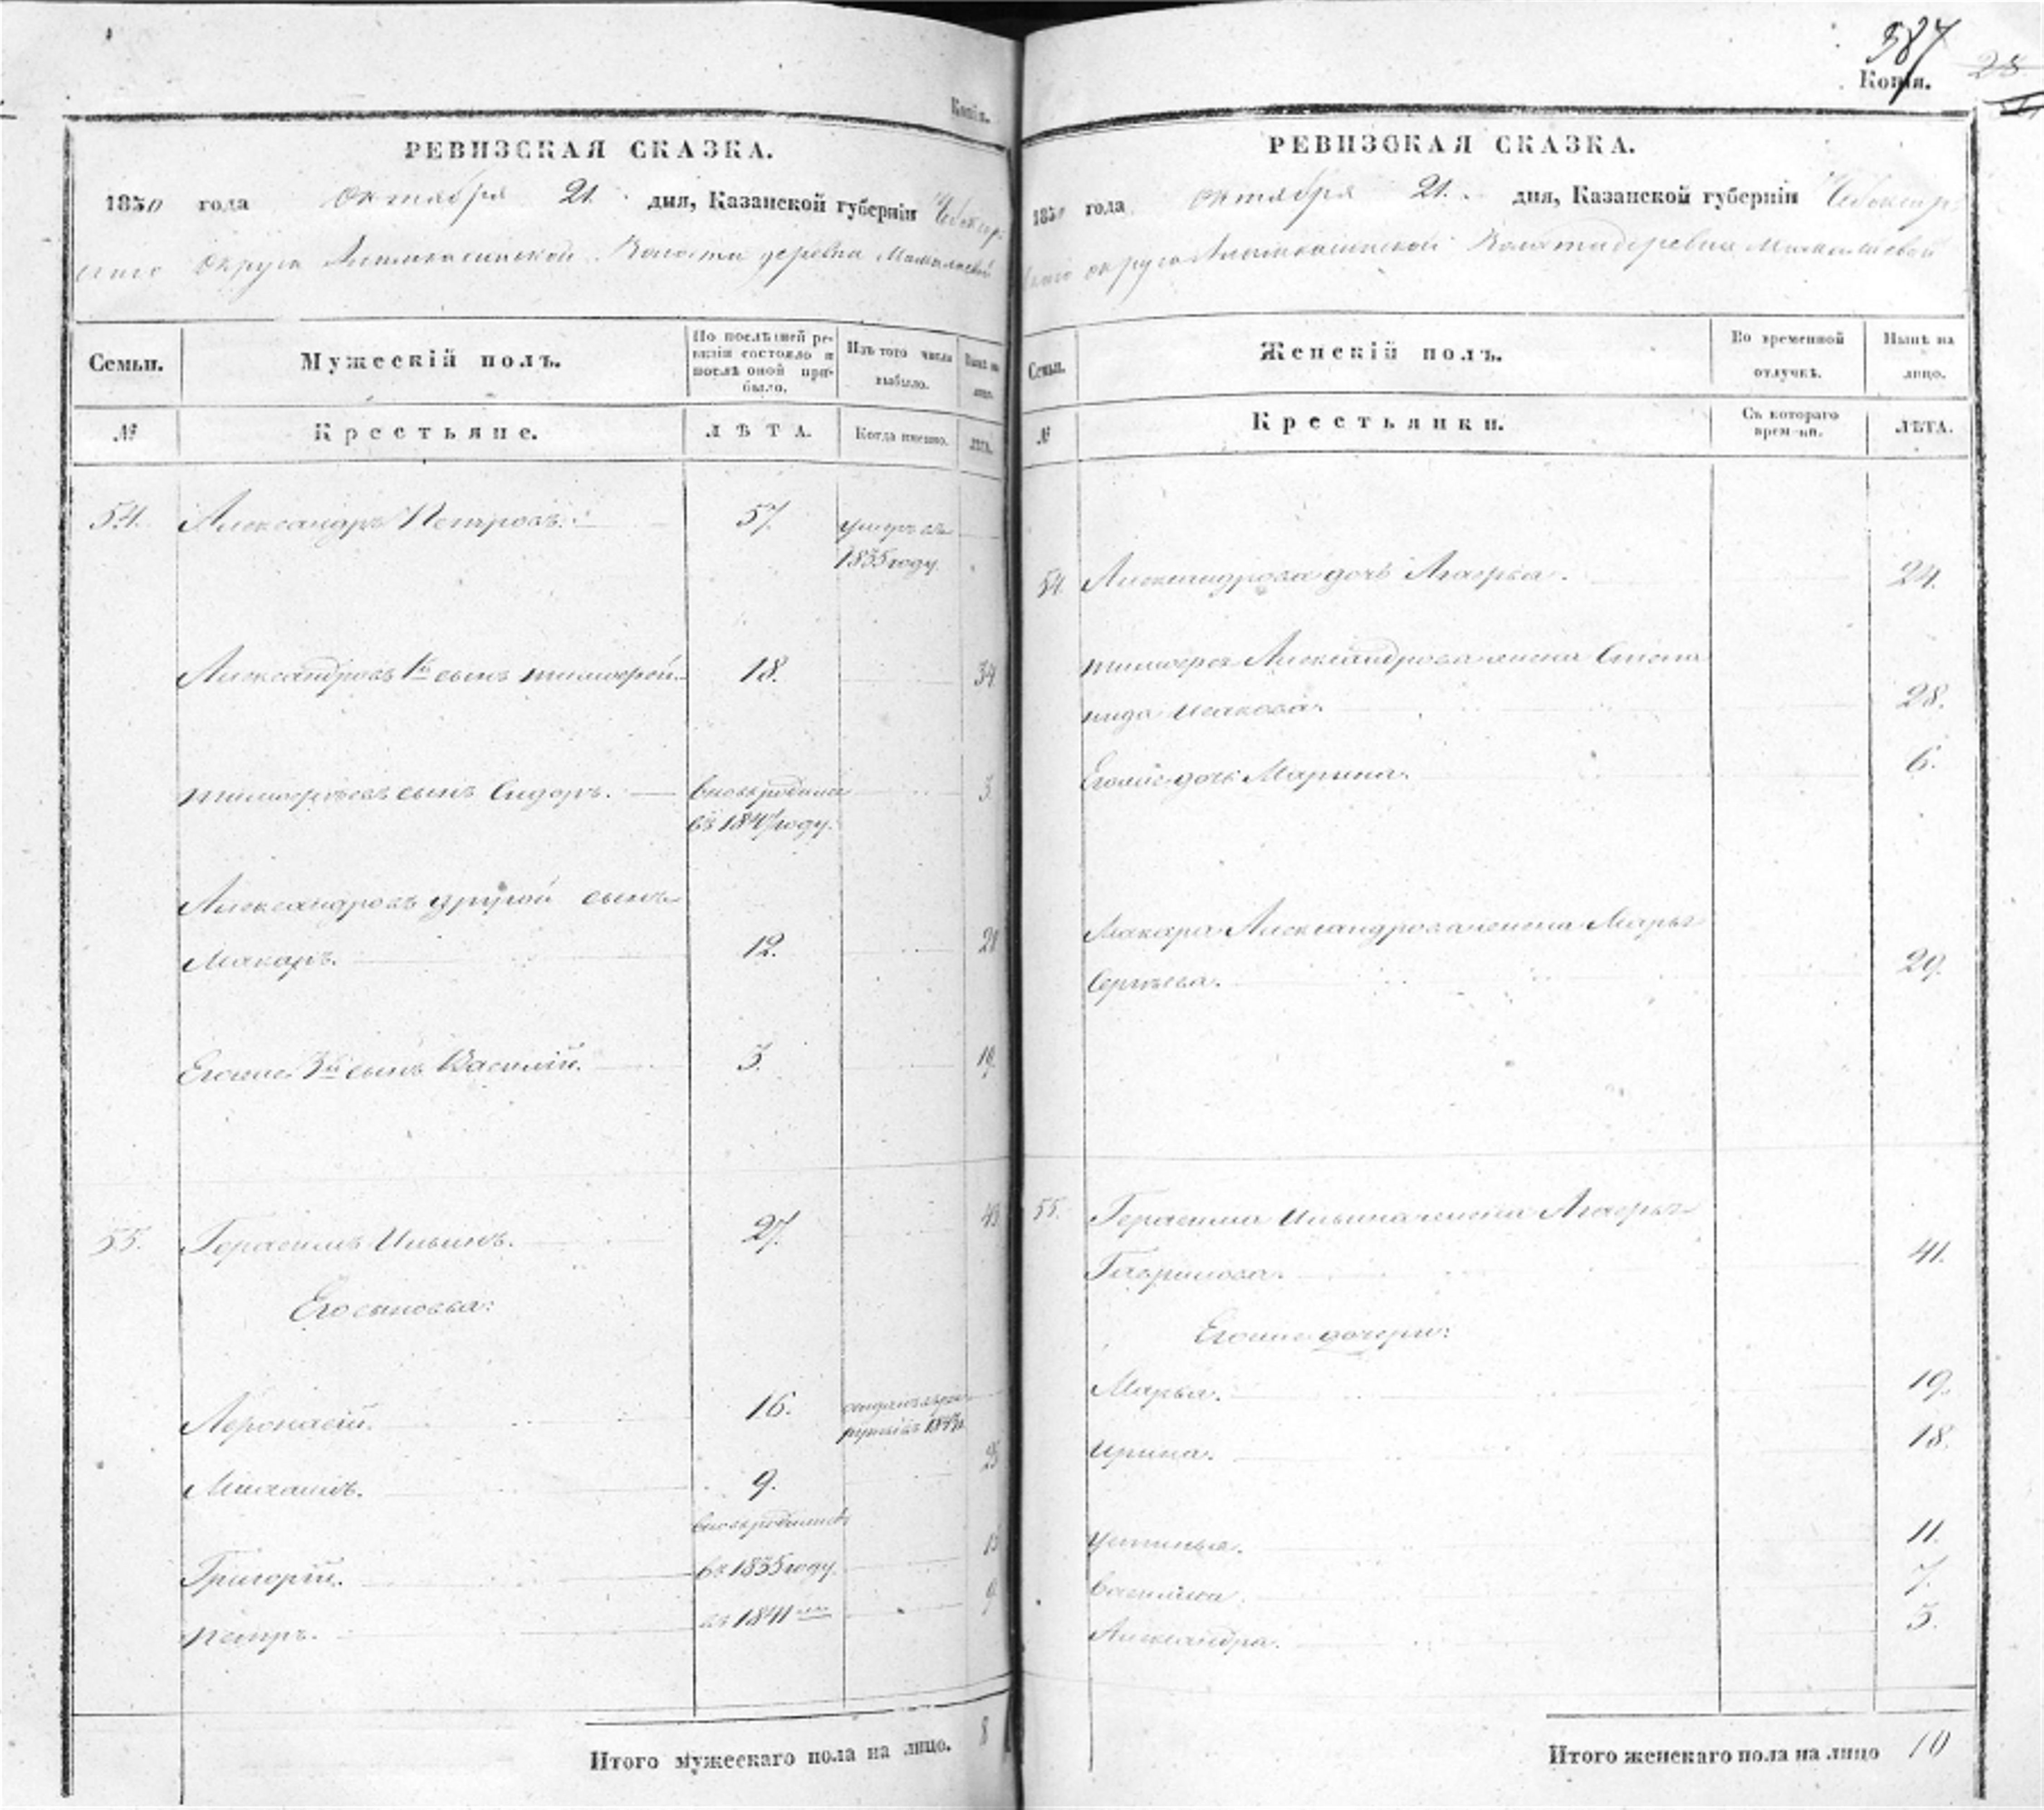 Копія.
РЕВИЗСКАЯ СКАЗКА.
1850 года Октября 21. дня, Казанской губерніи Чебоксар
скаго Округа Волости деревни
Семьи. Мужескій полъ. По послѣдней ре- Изъ того числа Нынѣ на
визіи состояло и выбыло. лицо.
послѣ оной при-
было.
№ Крестьяне. ЛѢТА. Когда именно. ЛѢТА.
54. Александръ Петровъ. 57. умеръ въ
1835 году.
Александровъ 1й сынъ Тимофей. 18. 34
Тимофеевъ сынъ Сидоръ. вновь родился 3
въ 1847 году.
Александровъ другой сынъ
Макаръ. 12. 28
Егоже 3й сынъ Василий. 3. 19.
55. Герасимъ Ильинъ. 27. 43
Его сыновья:
Афонасий. 16. отданъ въ рек
руты въ
Михаилъ. 9. 25
вновь родились
Григорій. въ 1835 году. 15
Петръ. въ 1841 9
Итого мужескаго пола на лицо. 8
587
28
Копія.
РЕВИЗСКАЯ СКАЗКА.
1850 года Октября 21. дня, Казанской губерніи Чебоксар
скаго округа Волости деревни
Семьи. Женскій полъ. Во временной Нынѣ на
отлучкѣ. лицо.
№ Крестьянки. Съ котораго ЛѢТА.
времени.
54. Александрова дочь Агафья. 24.
Тимофея Александрова жена Степа
нида Исакова. 28.
Егоже дочь Марина. 6.
Макара Александрова жена Марья
Сергѣева. 29.
55. Герасима Ильина жена Агафья
Гаврилова. 41.
Егоже дочери:
Марья. 19.
Ирина. 18.
Устинья. 11.
Василиса. 7.
Александра. 3.
Итого женскаго пола на лицо 10